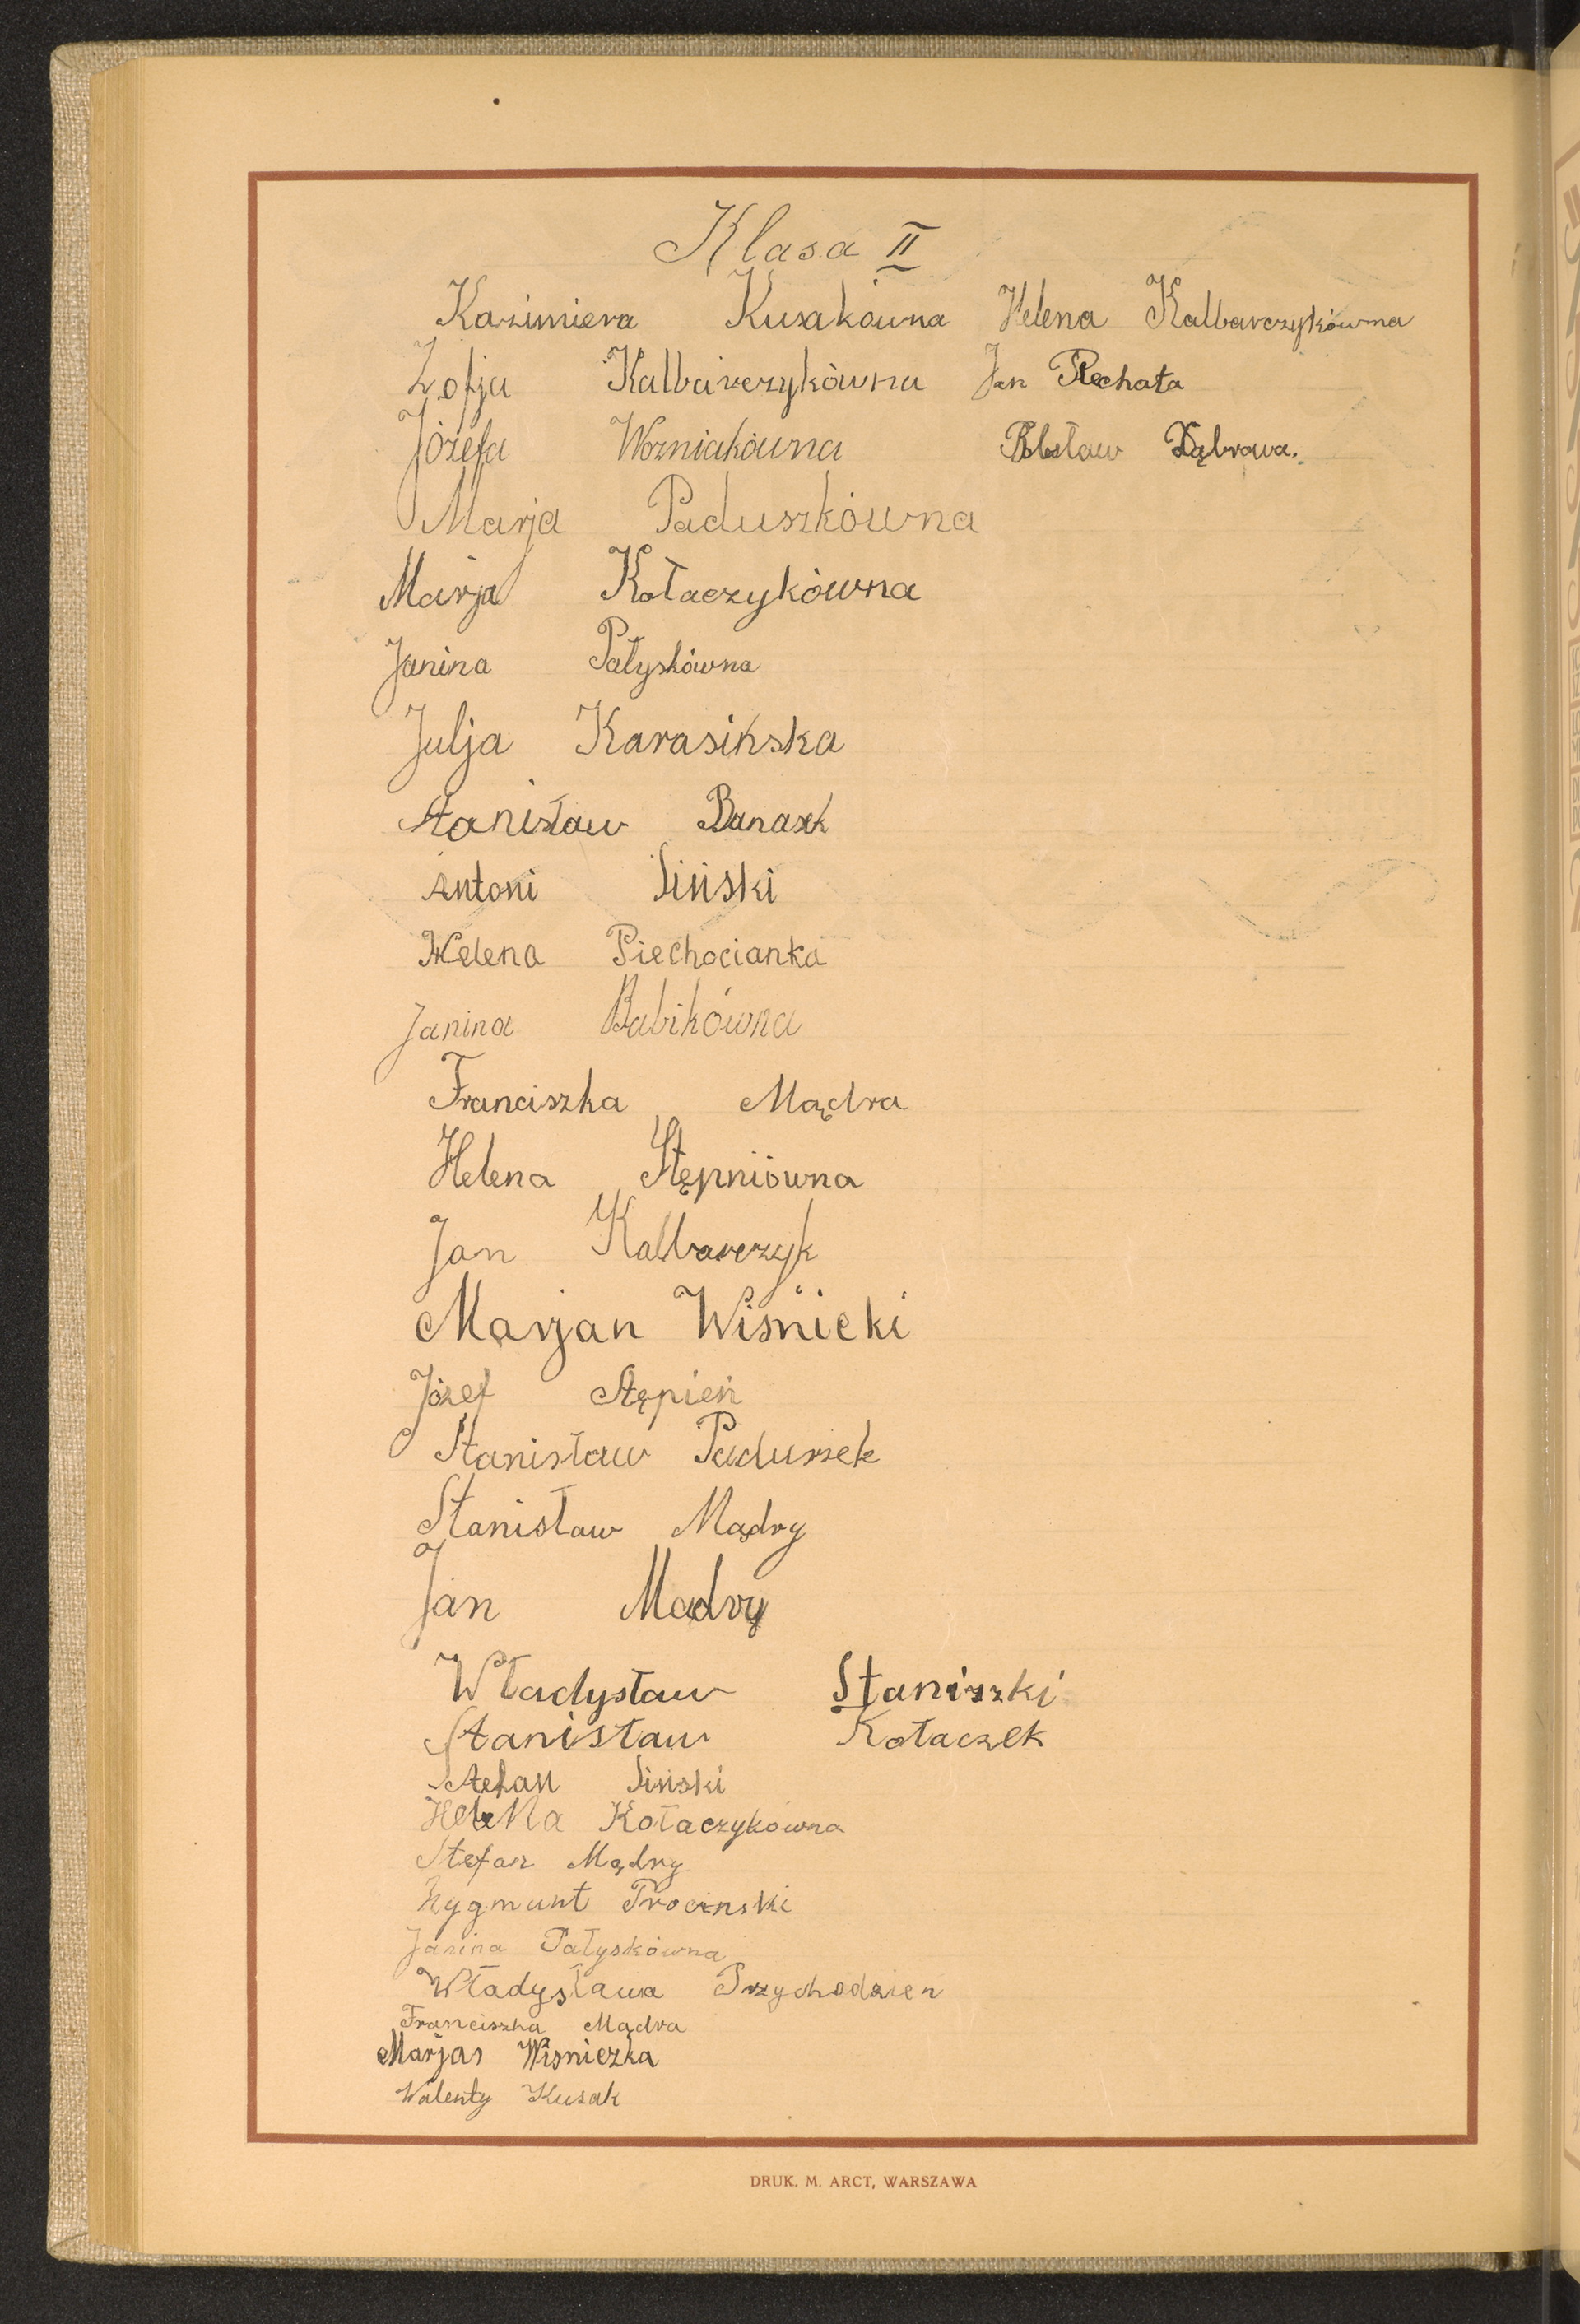 Klasa II
Kazimiera Kusakówna Helena Kalbarczykówna
Zofja Kalbarczykówna Jan Piechata
Józefa Wozniakówna Bolesław Dąbrowa.
Marja Paduszkówna
Marja Kołaczykówna
Janina Pałyskówna
Julja Karasińska
Stanisław Banasek
Antoni Siński
Helena Piechocianka
Janina Babikówna
Franciszka Mądra
Helena Stępniówna
Jan Kalbarczyk
Marjan Wiśnicki
Józef Stępień
Stanisław Paduszek
Stanisław Mądry
Jan Mądry
Władysław Staniszki
Stanisław Kołaczek
Stefan Siński
Helena Kołaczykówna
Stefan Mądry
Zygmunt Procinski
Janina Pałyskówna
Władysława Przychodzien
Franciszka Mądra
Marjas Wisniczka
Walenty Kusak
DRUK. M. ARCT, WARSZAWA